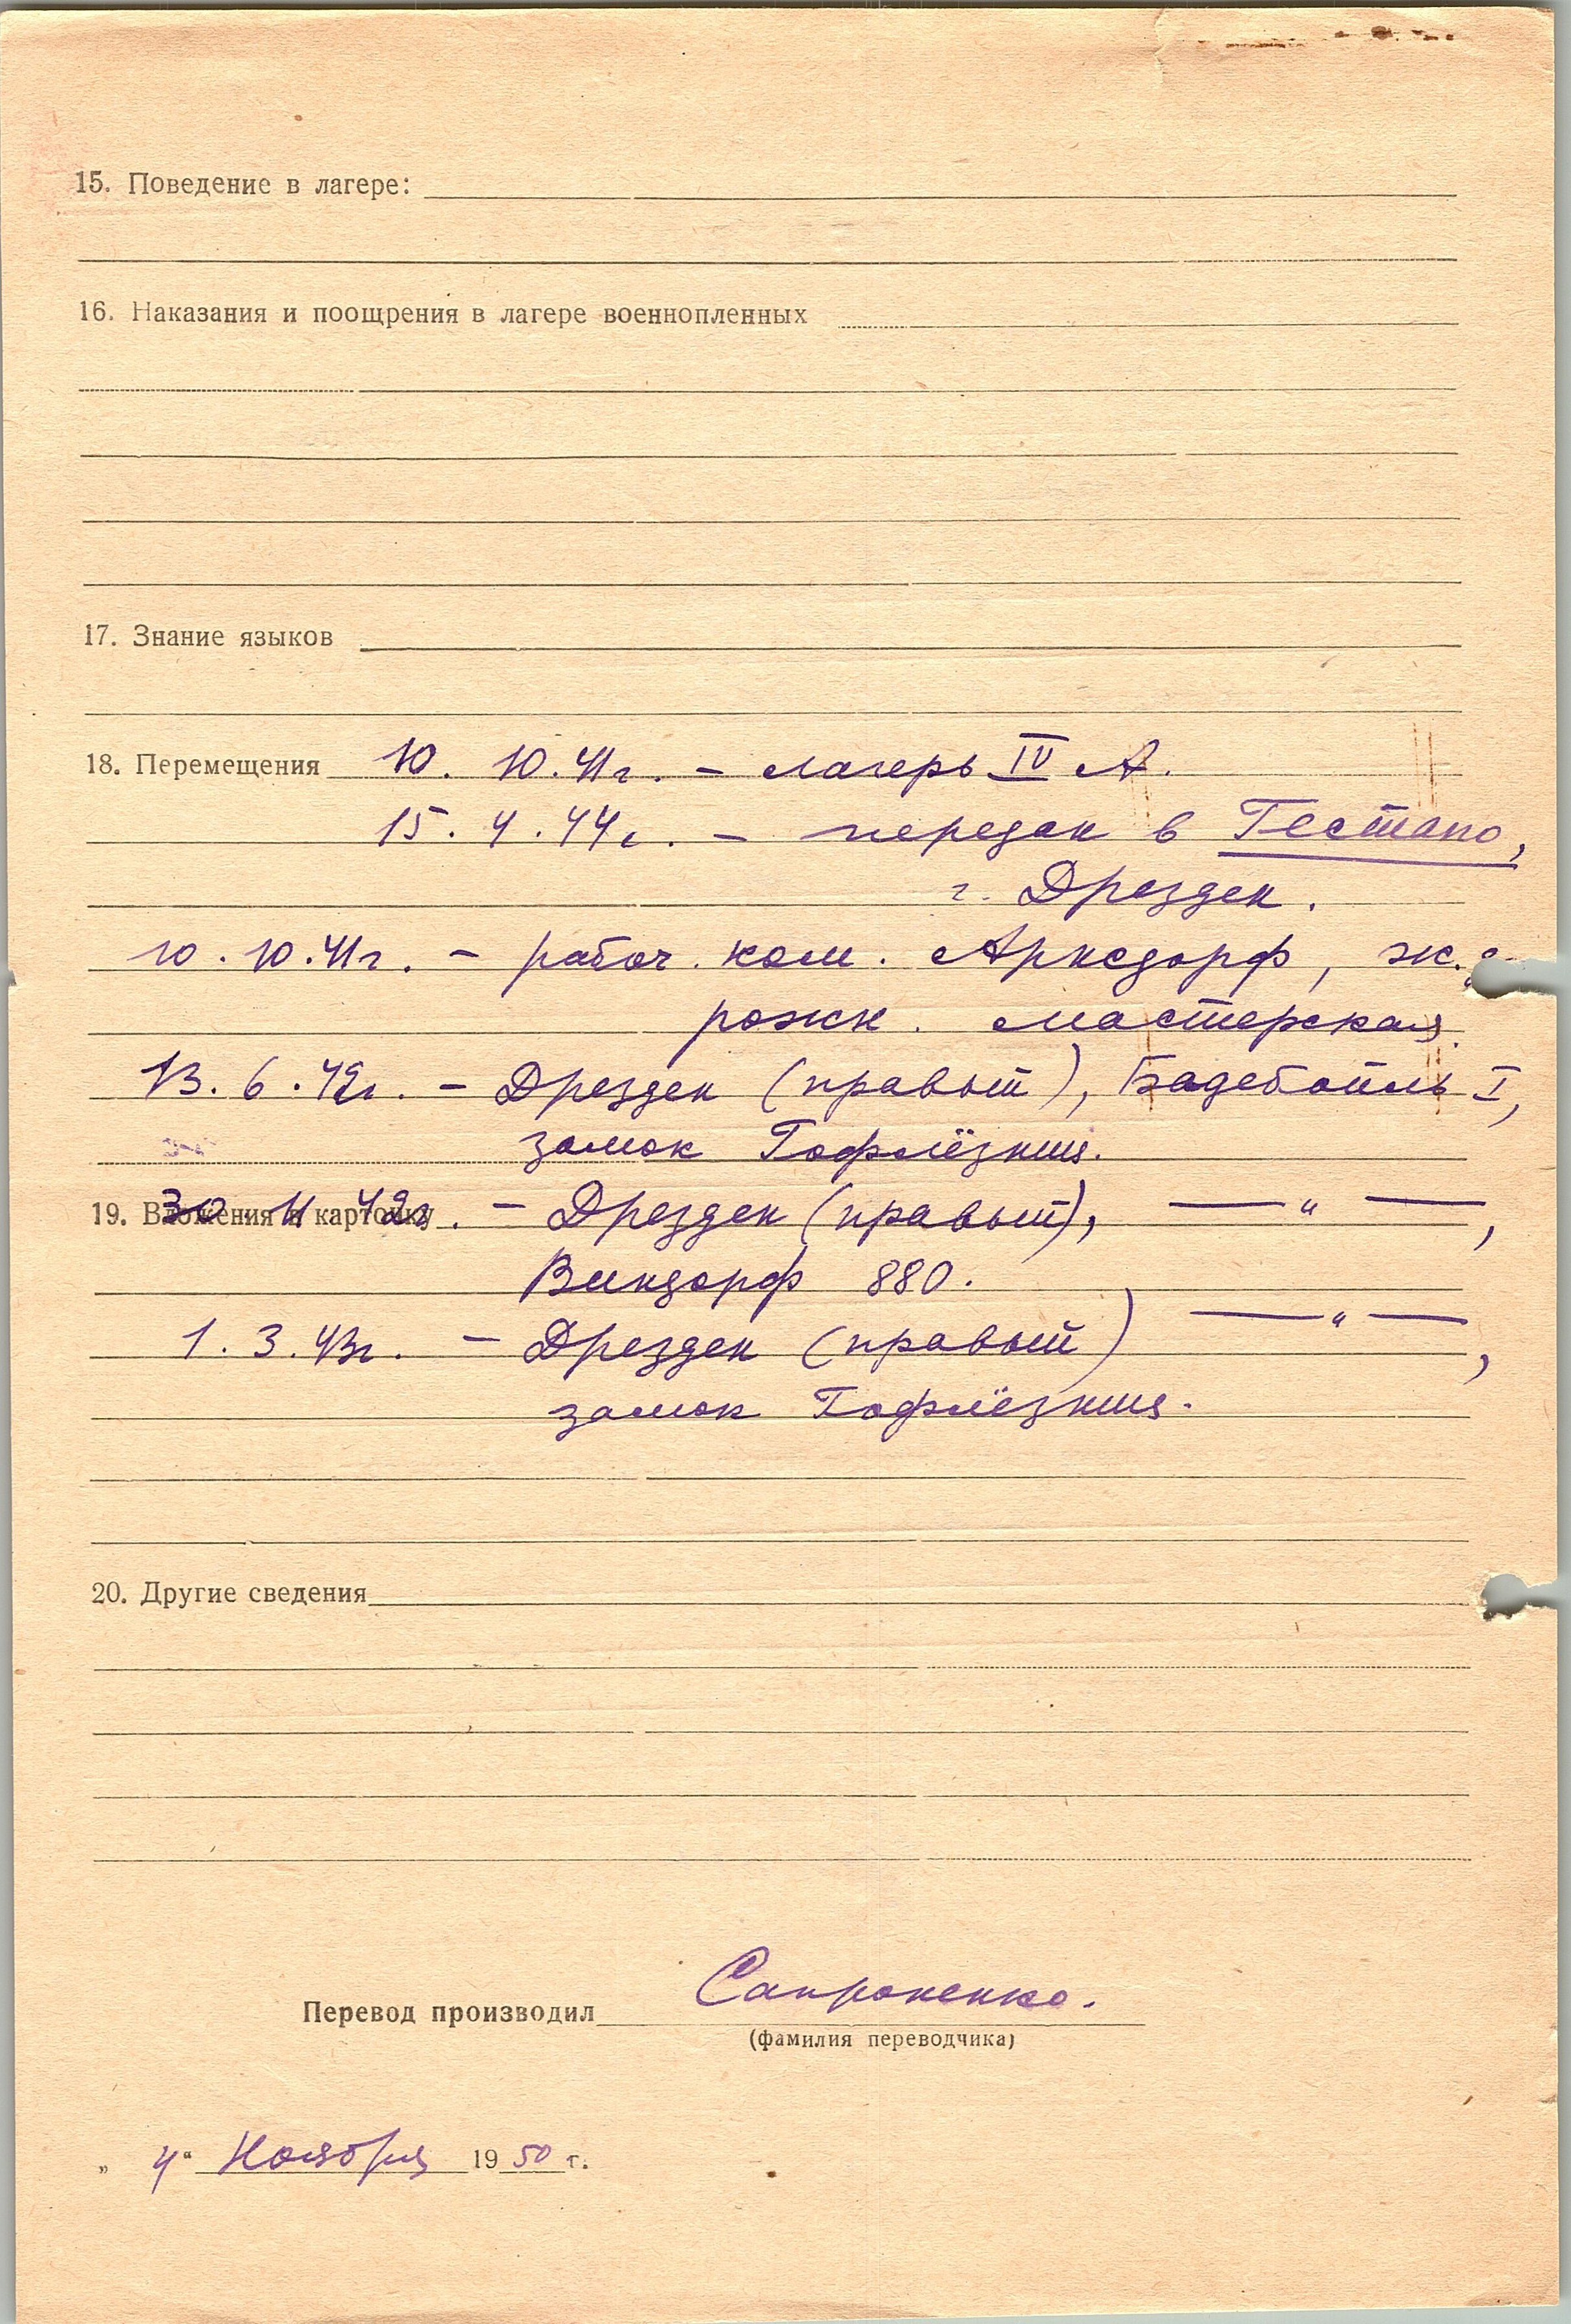 15. Поведение в лагере:
16. Наказания и поощрения в лагере военнопленных
17. Знание языков
18. Перемещения 10. 10. 41г. – лагерь IV А.
15. 4. 44г. – передан в Гестапо,
г. Дрезден.
10. 10. 41г. – рабоч. ком. Арнсдорф, ж.
рожн. мастерская
13. 6. 42г. – Дрезден (правый), I,
замок
19. Вложения в карточку 30. 11 42г. – Дрезден (правый), — " —,
Виндорф 880.
1. 3. 43г. – Дрезден (правый) — " —,
замок
20. Другие сведения
Перевод производил Сапроненко.
(фамилия переводчика)
„ 4 “ Ноября 1950 г.